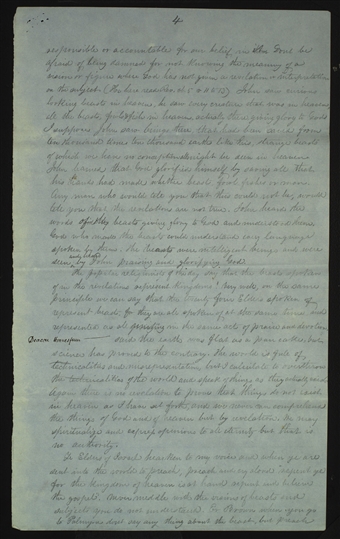 4
responsible or accountable for our belief, in
afraid of being damned for not knowing the meaning of a
vision or figure where God has not given a revelation or interpretation
on the subject
looking beasts in heaven, he saw every creature that was in heaven
all the beasts, fowls & fish in heaven, actually there giving glory to God
I suppose John saw beings there that had been saved from
ten thousand times ten thousand earths like this, strange beasts
of which we have no conception might be seen in heaven
John learned that God glorified himself by saving all that
his hands had made whether beasts fowl fishes or man
Any man who would tell you that this could not be, would
tell you that the revelations are not true. John heard the
words of the beasts giving glory to God and understood them
God who made the beasts could understand every language
spoken by them. The beasts were intelligent beings and were
seen and heard by John praising and glorifying God
The popular religionists of the day say that the beasts spoken
of in the revelations represent kingdoms. Very well, on the same
principle we can say that the twenty four Elders spoken of
represent beasts, for they are all spoken of at the same time and
represented as all uniting in the same acts of praise and devotion
Deacon Homespun said the earth was flat as a pan cake, but
science has proved to the contrary. The world is full of
technicalities and misrepresentation, but I calculate to overthrow
the technicalities of the world and speak of things as they actually exist
Again there is no revelation to prove that things do not exist
in heaven as I have set forth, and we never can comprehend
the things of God and of heaven but by revelation. We may
spiritualize and express opinions to all eternity but that is
no authority.
Ye Elders of Israel hearken to my voice and when ye are
sent into the world to preach, preach and cry aloud repent ye
for the kingdom of heaven is at hand repent and believe
the gospel. Never meddle with the visions of beasts and
subjects you do not understand. Er Brown when you go
to Palmyra dont say any thing about the beast, but preach